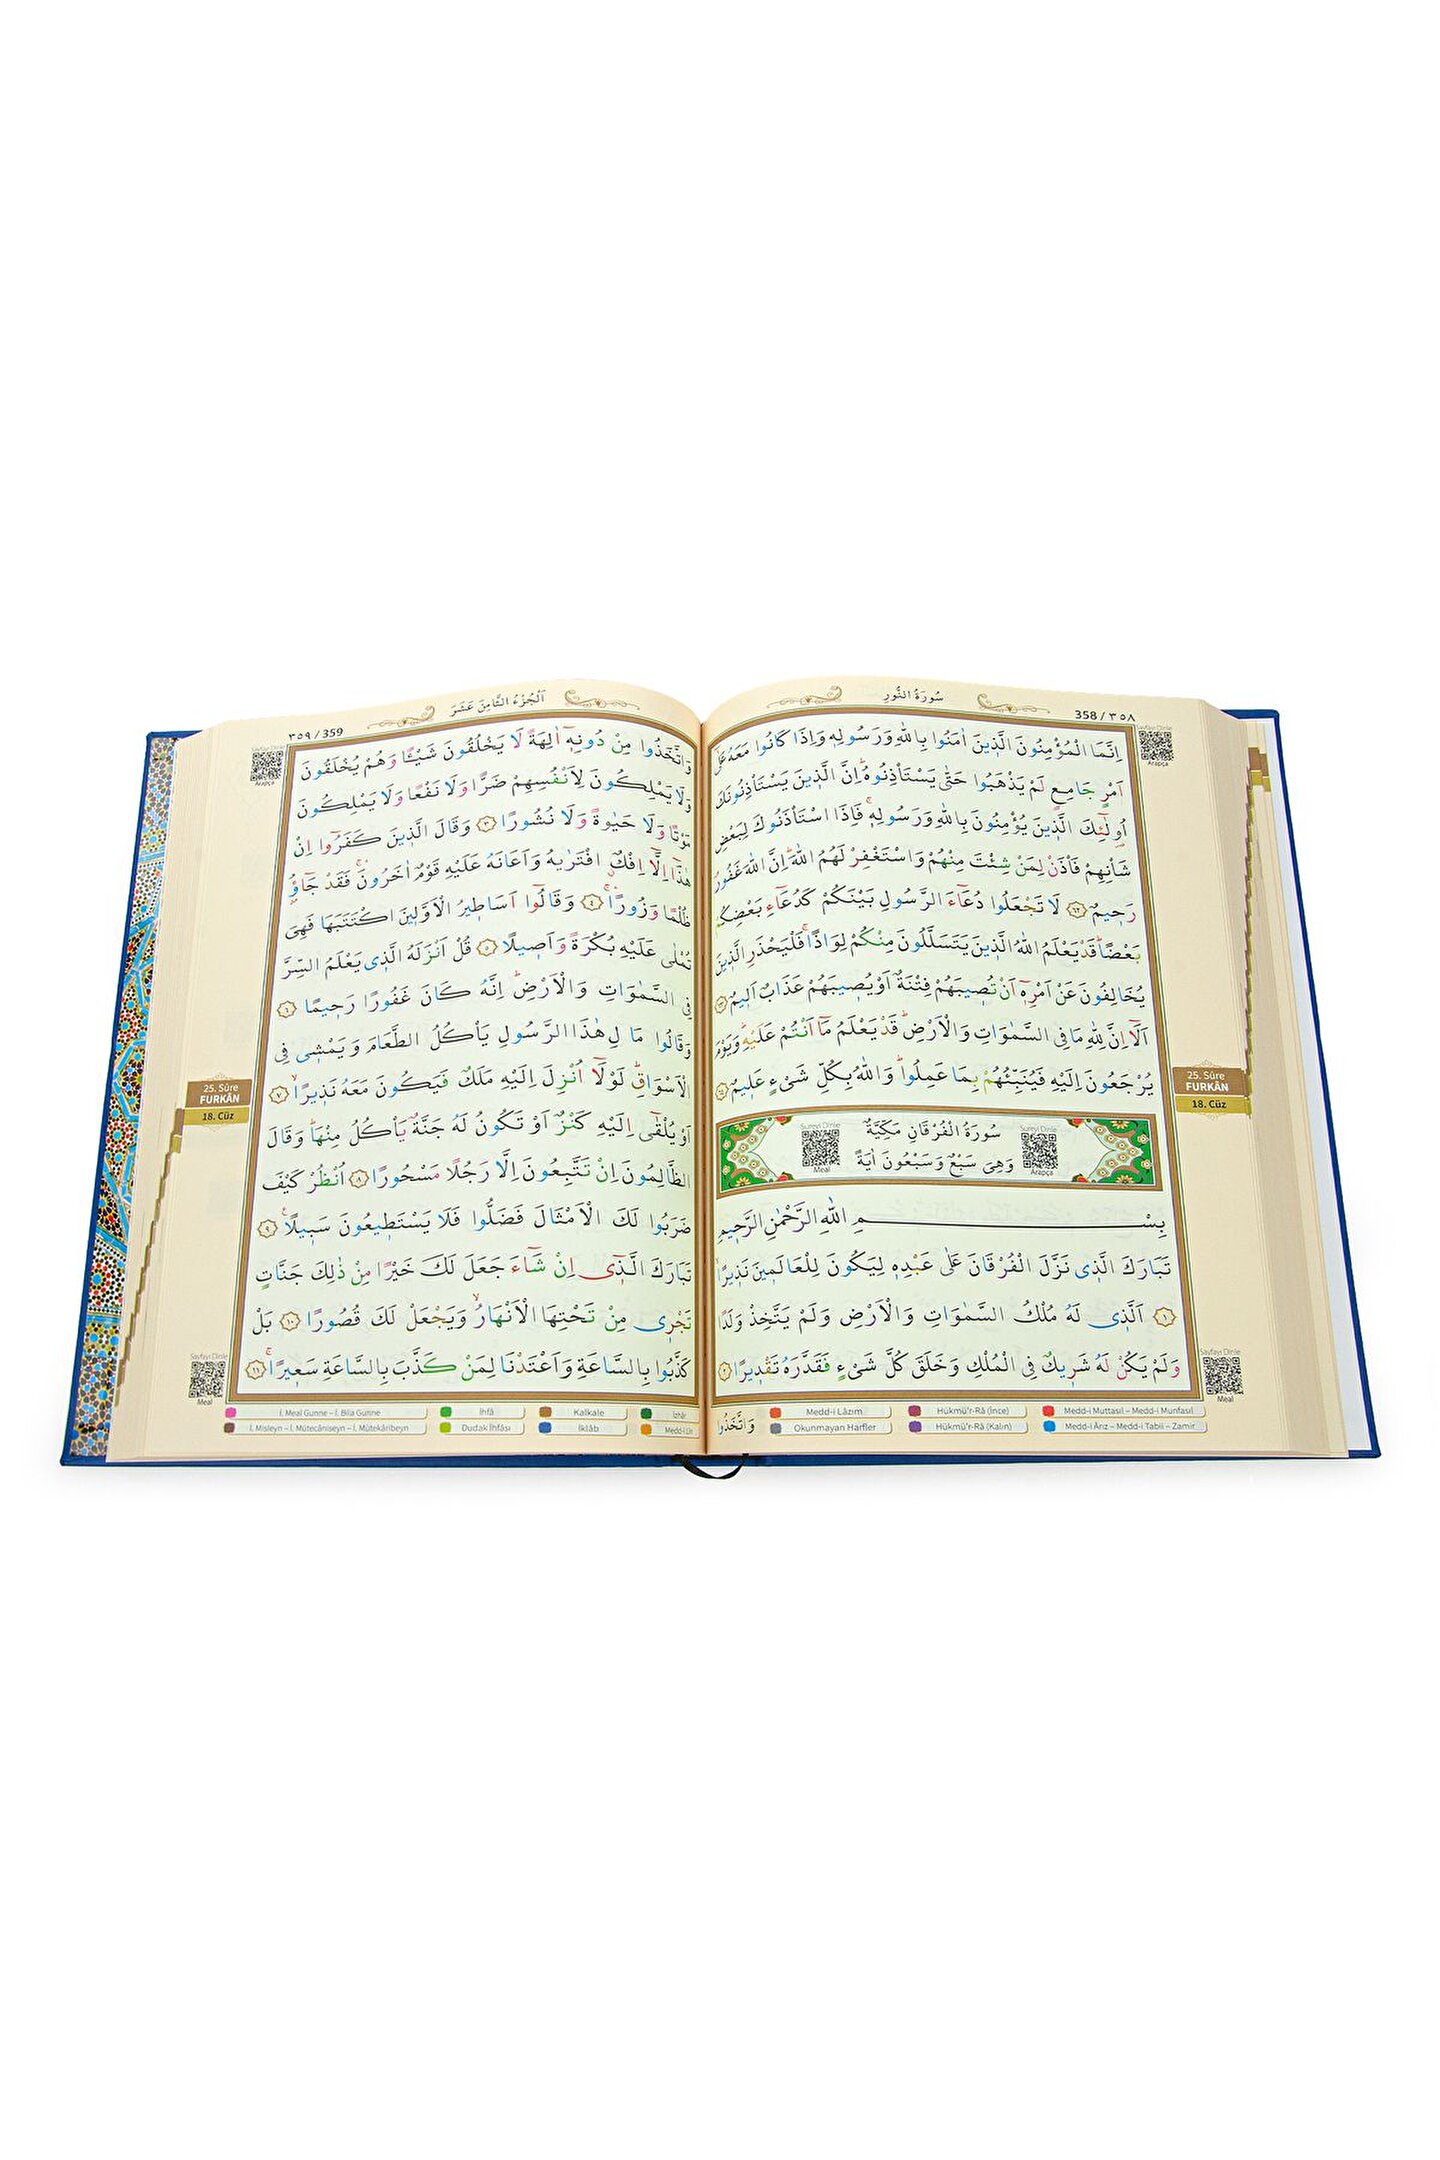 358 / ٣٥٨
سُورَةُ النُّورِ
Sayfayı Dinle
Arapça
اِنَّمَا الْمُؤْمِنُونَ الَّذ۪ينَ اٰمَنُوا بِاللّٰهِ وَرَسُولِه۪ وَاِذَا كَانُوا مَعَهُ عَلٰٓى
اَمْرٍ جَامِعٍ لَمْ يَذْهَبُوا حَتّٰى يَسْتَأْذِنُوهُۜ اِنَّ الَّذ۪ينَ يَسْتَأْذِنُونَكَ
اُو۬لٰٓئِكَ الَّذ۪ينَ يُؤْمِنُونَ بِاللّٰهِ وَرَسُولِه۪ۚ فَاِذَا اسْتَأْذَنُوكَ لِبَعْضِ
شَأْنِهِمْ فَأْذَنْ لِمَنْ شِئْتَ مِنْهُمْ وَاسْتَغْفِرْ لَهُمُ اللّٰهَۜ اِنَّ اللّٰهَ غَفُورٌ
رَح۪يمٌ ﴿٦٢﴾ لَا تَجْعَلُوا دُعَٓاءَ الرَّسُولِ بَيْنَكُمْ كَدُعَٓاءِ بَعْضِكُمْ
بَعْضًاۜ قَدْ يَعْلَمُ اللّٰهُ الَّذ۪ينَ يَتَسَلَّلُونَ مِنْكُمْ لِوَاذًاۚ فَلْيَحْذَرِ الَّذ۪ينَ
يُخَالِفُونَ عَنْ اَمْرِه۪ٓ اَنْ تُص۪يبَهُمْ فِتْنَةٌ اَوْ يُص۪يبَهُمْ عَذَابٌ اَل۪يمٌ ﴿٦٣﴾
اَلَٓا اِنَّ لِلّٰهِ مَا فِي السَّمٰوَاتِ وَالْاَرْضِۜ قَدْ يَعْلَمُ مَٓا اَنْتُمْ عَلَيْهِۜ وَيَوْمَ
يُرْجَعُونَ اِلَيْهِ فَيُنَبِّئُهُمْ بِمَا عَمِلُواۜ وَاللّٰهُ بِكُلِّ شَيْءٍ عَل۪يمٌ ﴿٦٤﴾
Sureyi Dinle
Meal
سُورَةُ الْفُرْقَانِ مَكِّيَّةٌ
وَهِيَ سَبْعٌ وَسَبْعُونَ اٰيَةً
Sureyi Dinle
Arapça
بِسْمِ اللّٰهِ الرَّحْمٰنِ الرَّح۪يمِ
تَبَارَكَ الَّذ۪ي نَزَّلَ الْفُرْقَانَ عَلٰى عَبْدِه۪ لِيَكُونَ لِلْعَالَم۪ينَ نَذ۪يرًا
﴿١﴾ اَلَّذ۪ي لَهُ مُلْكُ السَّمٰوَاتِ وَالْاَرْضِ وَلَمْ يَتَّخِذْ وَلَدًا
وَلَمْ يَكُنْ لَهُ شَر۪يكٌ فِي الْمُلْكِ وَخَلَقَ كُلَّ شَيْءٍ فَقَدَّرَهُ تَقْد۪يرًا ﴿٢﴾
وَاتَّخَذُوا
25. Sûre
FURKÂN
18. Cüz
Sayfayı Dinle
Meal
Medd-i Lâzım
Hükmü'r-Râ (İnce)
Medd-i Muttasıl – Medd-i Munfasıl
Okunmayan Harfler
Hükmü'r-Râ (Kalın)
Medd-i Ârız – Medd-i Tabii – Zamir
اَلْجُزْءُ الثَّامِنَ عَشَرَ
٣٥٩ / 359
Sayfayı Dinle
Arapça
وَاتَّخَذُوا مِنْ دُونِه۪ٓ اٰلِهَةً لَا يَخْلُقُونَ شَيْـًٔا وَهُمْ يُخْلَقُونَ
وَلَا يَمْلِكُونَ لِاَنْفُسِهِمْ ضَرًّا وَلَا نَفْعًا وَلَا يَمْلِكُونَ
مَوْتًا وَلَا حَيٰوةً وَلَا نُشُورًا ﴿٣﴾ وَقَالَ الَّذ۪ينَ كَفَرُٓوا اِنْ
هٰذَٓا اِلَّٓا اِفْكٌۨ افْتَرٰيهُ وَاَعَانَهُ عَلَيْهِ قَوْمٌ اٰخَرُونَۚ فَقَدْ جَٓاؤُ۫
ظُلْمًا وَزُورًاۚ ﴿٤﴾ وَقَالُٓوا اَسَاط۪يرُ الْاَوَّل۪ينَ اكْتَتَبَهَا فَهِيَ
تُمْلٰى عَلَيْهِ بُكْرَةً وَاَص۪يلًا ﴿٥﴾ قُلْ اَنْزَلَهُ الَّذ۪ي يَعْلَمُ السِّرَّ
فِي السَّمٰوَاتِ وَالْاَرْضِۜ اِنَّهُ كَانَ غَفُورًا رَح۪يمًا ﴿٦﴾
وَقَالُوا مَا لِ هٰذَا الرَّسُولِ يَأْكُلُ الطَّعَامَ وَيَمْش۪ي فِي
الْاَسْوَاقِۜ لَوْلَٓا اُنْزِلَ اِلَيْهِ مَلَكٌ فَيَكُونَ مَعَهُ نَذ۪يرًاۙ ﴿٧﴾
اَوْ يُلْقٰٓى اِلَيْهِ كَنْزٌ اَوْ تَكُونُ لَهُ جَنَّةٌ يَأْكُلُ مِنْهَاۜ وَقَالَ
الظَّالِمُونَ اِنْ تَتَّبِعُونَ اِلَّا رَجُلًا مَسْحُورًا ﴿٨﴾ اُنْظُرْ كَيْفَ
ضَرَبُوا لَكَ الْاَمْثَالَ فَضَلُّوا فَلَا يَسْتَط۪يعُونَ سَب۪يلًا۟ ﴿٩﴾
تَبَارَكَ الَّذ۪ٓي اِنْ شَٓاءَ جَعَلَ لَكَ خَيْرًا مِنْ ذٰلِكَ جَنَّاتٍ
تَجْر۪ي مِنْ تَحْتِهَا الْاَنْهَارُۙ وَيَجْعَلْ لَكَ قُصُورًا ﴿١٠﴾ بَلْ
كَذَّبُوا بِالسَّاعَةِ وَاَعْتَدْنَا لِمَنْ كَذَّبَ بِالسَّاعَةِ سَع۪يرًاۚ ﴿١١﴾
25. Sûre
FURKÂN
18. Cüz
Sayfayı Dinle
Meal
İ. Meal Gunne – İ. Bila Gunne
İhfâ
Kalkale
İzhâr
İ. Misleyn – İ. Mütecâniseyn – İ. Mütekâribeyn
Dudak İhfâsı
İklâb
Medd-i Lîn